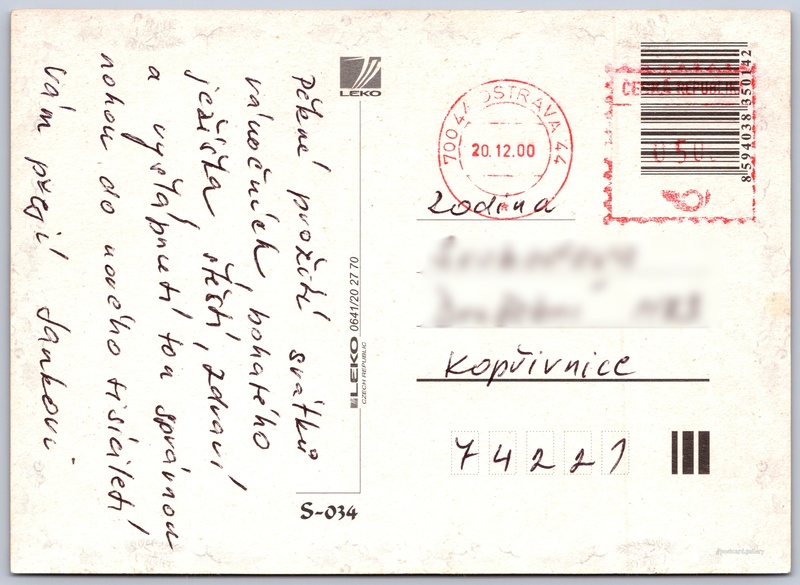 Pěkné prožití svátků
vánočních, bohatého
ježíška, štěstí, zdraví
a vyšlápnutí tou správnou
nohou do nového tisíciletí
Vám přejí Jankovi
LEKO
LEKO
CZECH REPUBLIC
0641/20 27 70
S-034
700 44 OSTRAVA 44
20.12.00
ČESKÁ REPUBLIKA
8 594038 350142
Rodina
Kopřivnice
74221